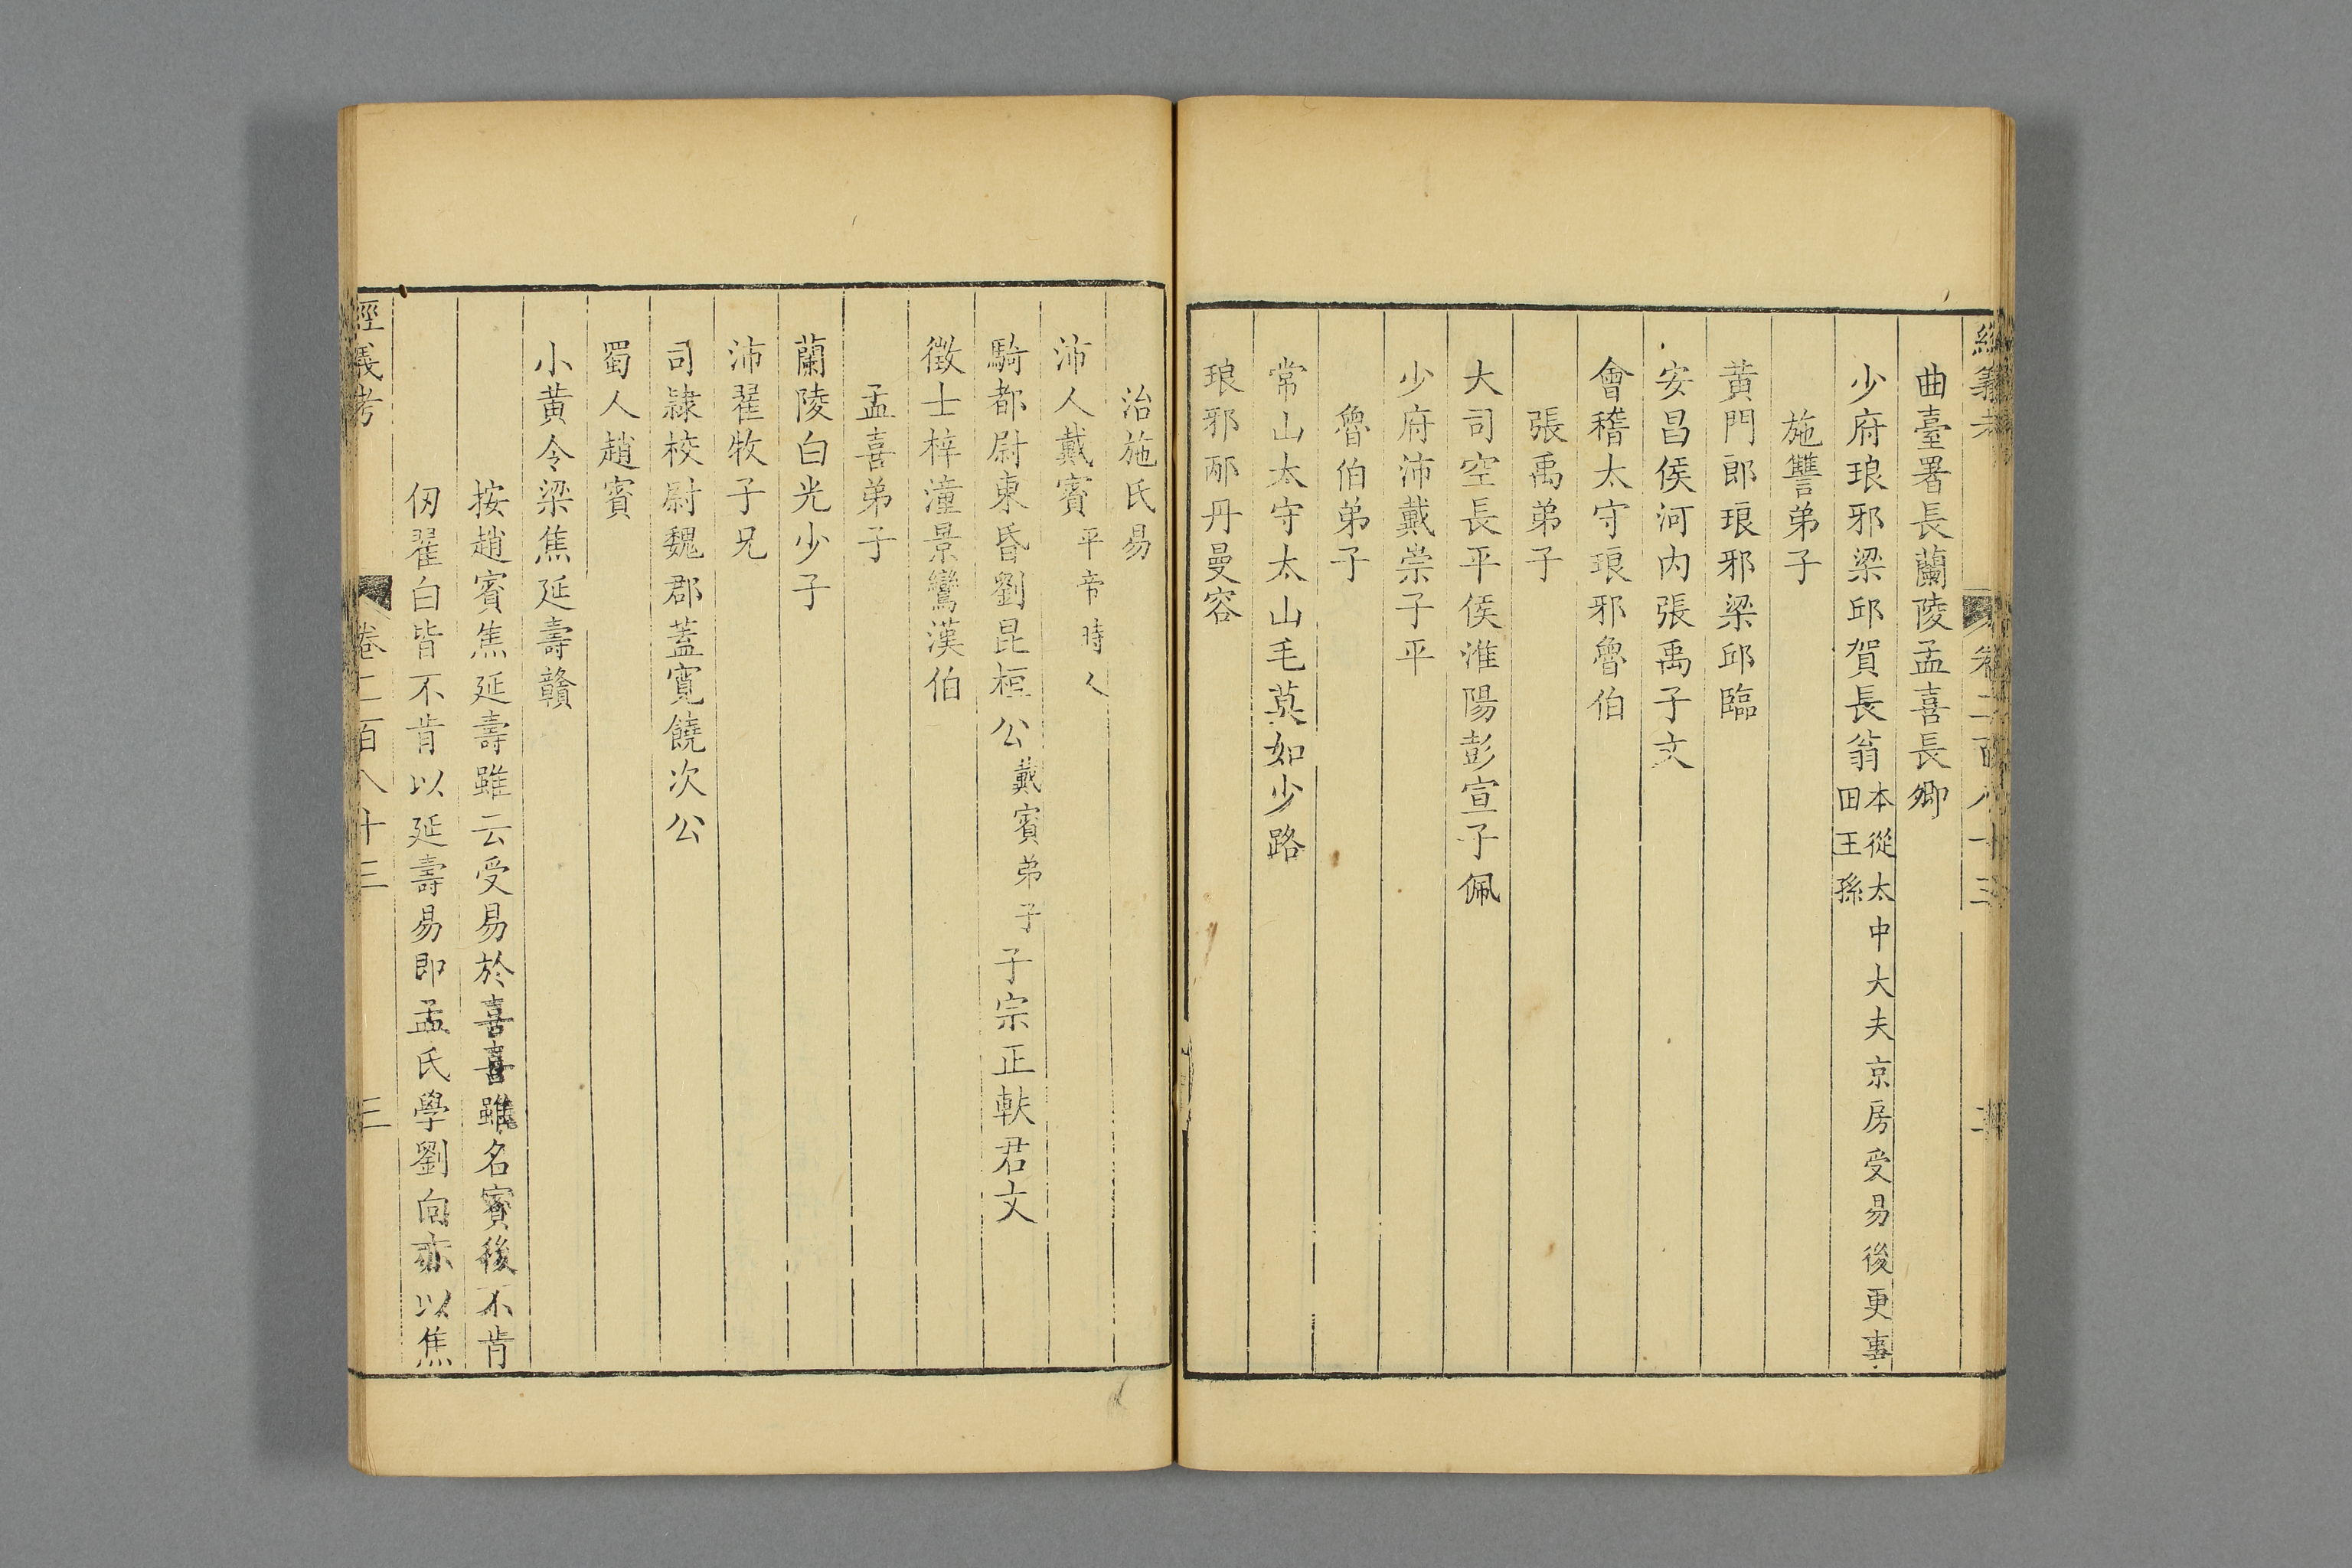 經義考 卷二百八十三 二
曲臺署長蘭陵孟喜長卿
少府琅邪梁邱賀長翁本從太中大夫京房受易後更事田王孫
施讐弟子
黃門郎琅邪梁邱臨
安昌侯河內張禹子文
會稽太守琅邪魯伯
張禹弟子
大司空長平侯淮陽彭宣子佩
少府沛戴崇子平
魯伯弟子
常山太守太山毛莫如少路
琅邪邴丹曼容
治施氏易
沛人戴賓平帝時人
騎都尉東昏劉昆桓公戴賓弟子子宗正軼君文
徵士梓潼景鸞漢伯
孟喜弟子
蘭陵白光少子
沛翟牧子兄
司隷校尉魏郡蓋寬饒次公
蜀人趙賓
小黃令梁焦延壽贛
按趙賓焦延壽雖云受易於喜喜雖名賓後不肯
仞翟白皆不肯以延壽易即孟氏學劉向亦以焦
經義考 卷二百八十三 三